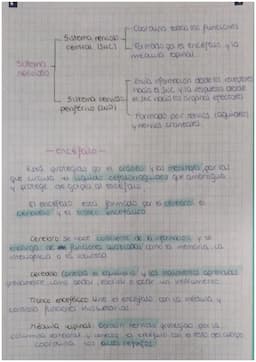 Coordina todas las funciones
Sistema nervioso
central (SNC)
Formado por el encéfalo y la
médula espinal
Sistema
nervioso
Envía información desde los receptores
hacia el SNC y la respuesta desde
el SNC hacia los órganos efectores
Sistema nervioso
periférico (SNP)
Formado por nervios (raquídeos)
y nervios craneales.
— encéfalo —
Está protegido por el cráneo y las meninges, por las
que circula el líquido cefalorraquídeo que
y protege de golpes al encéfalo
El encéfalo está formado por el cerebro, el
cerebelo y el tronco encefálico
Cerebro: se hace consciente de la información y se
encarga de funciones como la memoria, la
inteligencia y la
Cerebelo: controla el equilibrio y los movimientos aprendidos
como andar, o tocar un instrumento.
Tronco encefálico: une el encéfalo con la médula y
controla funciones involuntarias
Médula espinal: protegido por la
columna vertebral y el encéfalo con el resto del cuerpo
coordina los actos reflejos.